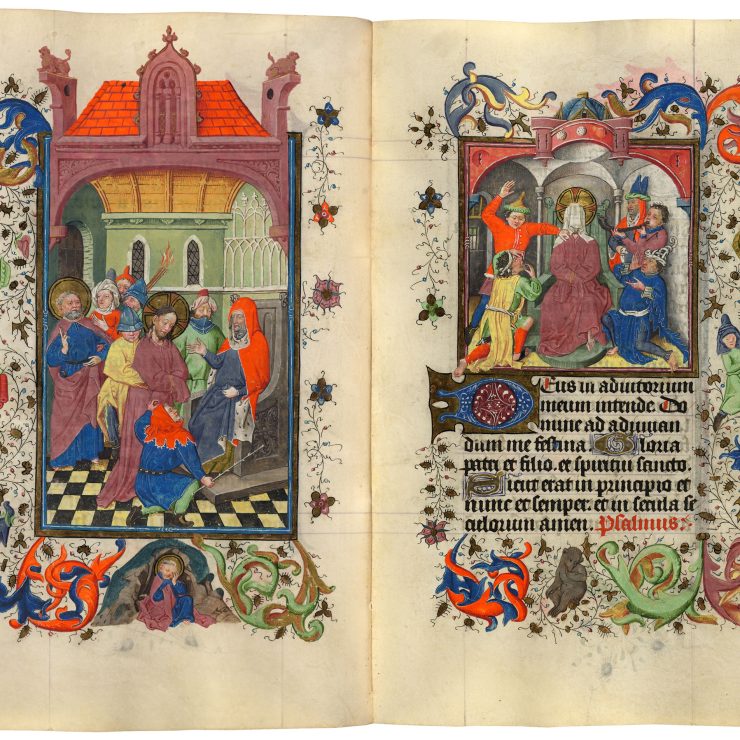 DEus in adiutorium
meum intende. Do
mine ad adiuuan
dum me festina. Gloria
patri et filio. et spiritui sancto.
Sicut erat in principio et
nunc et semper. et in secula se
culorum amen. Psalmus.